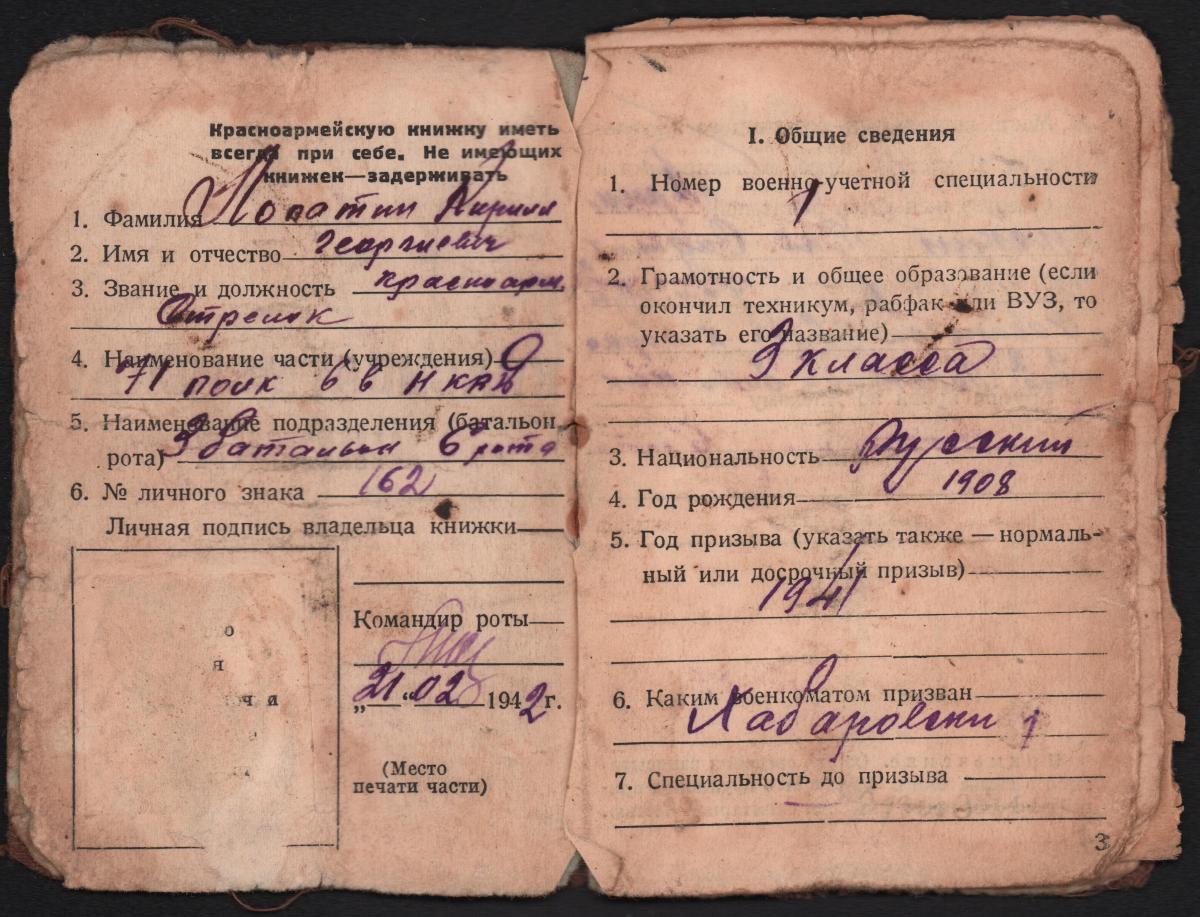 Красноармейскую книжку иметь
всегда при себе. Не имеющих
книжек—задерживать
1. Фамилия Лопатин Кирилл
2. Имя и отчество Георгиевич
3. Звание и должность красноарм.
Стрелок
4. Наименование части (учреждения)
71 полк ВВ НКВД
5. Наименование подразделения (батальон,
рота) 3 батальон 6 рота
6. № личного знака 162
Личная подпись владельца книжки
Командир роты
„21“ 02 1942 г.
(Место
печати части)
о
я
чи
I. Общие сведения
1. Номер военно-учетной специальности
1
2. Грамотность и общее образование (если
окончил техникум, рабфак или ВУЗ, то
указать его название)
3 класса
3. Национальность Русский
4. Год рождения 1908
5. Год призыва (указать также — нормаль-
ный или досрочный призыв)
1941
6. Каким военкоматом призван
Хабаровски
7. Специальность до призыва
3